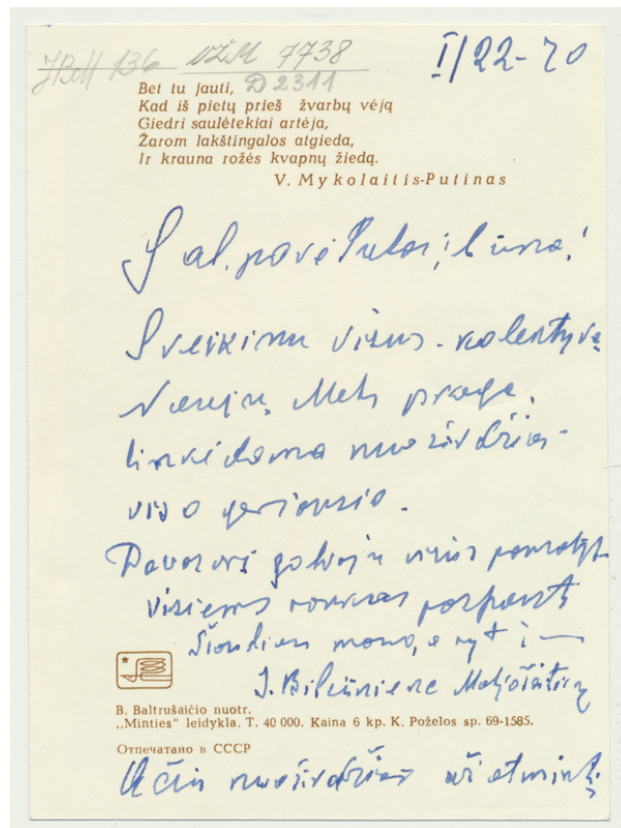 JBM 136 VŽM 7738
D2311
I/22-70
Bet tu jauti,
Kad iš pietų prieš žvarbų vėją
Giedri saulėtekiai artėja,
Žarom lakštingalos atgieda,
Ir krauna rožės kvapnų žiedą.
V. Mykolaitis-Putinas
Sveikinu visus - kolektyvą
Naujų Metų proga,
linkėdama nuoširdžiai
viso geriausio.
galvoju visus
visiems rankas
Šiandien mane, o rytį
J. Biliūnienė Matjošaitienė
B. Baltrušaičio nuotr.
„Minties" leidykla. T. 40 000. Kaina 6 kp. K. Poželos sp. 69-1585.
Отпечатано в СССР
Ačiū nuoširdžiai už atmintį.